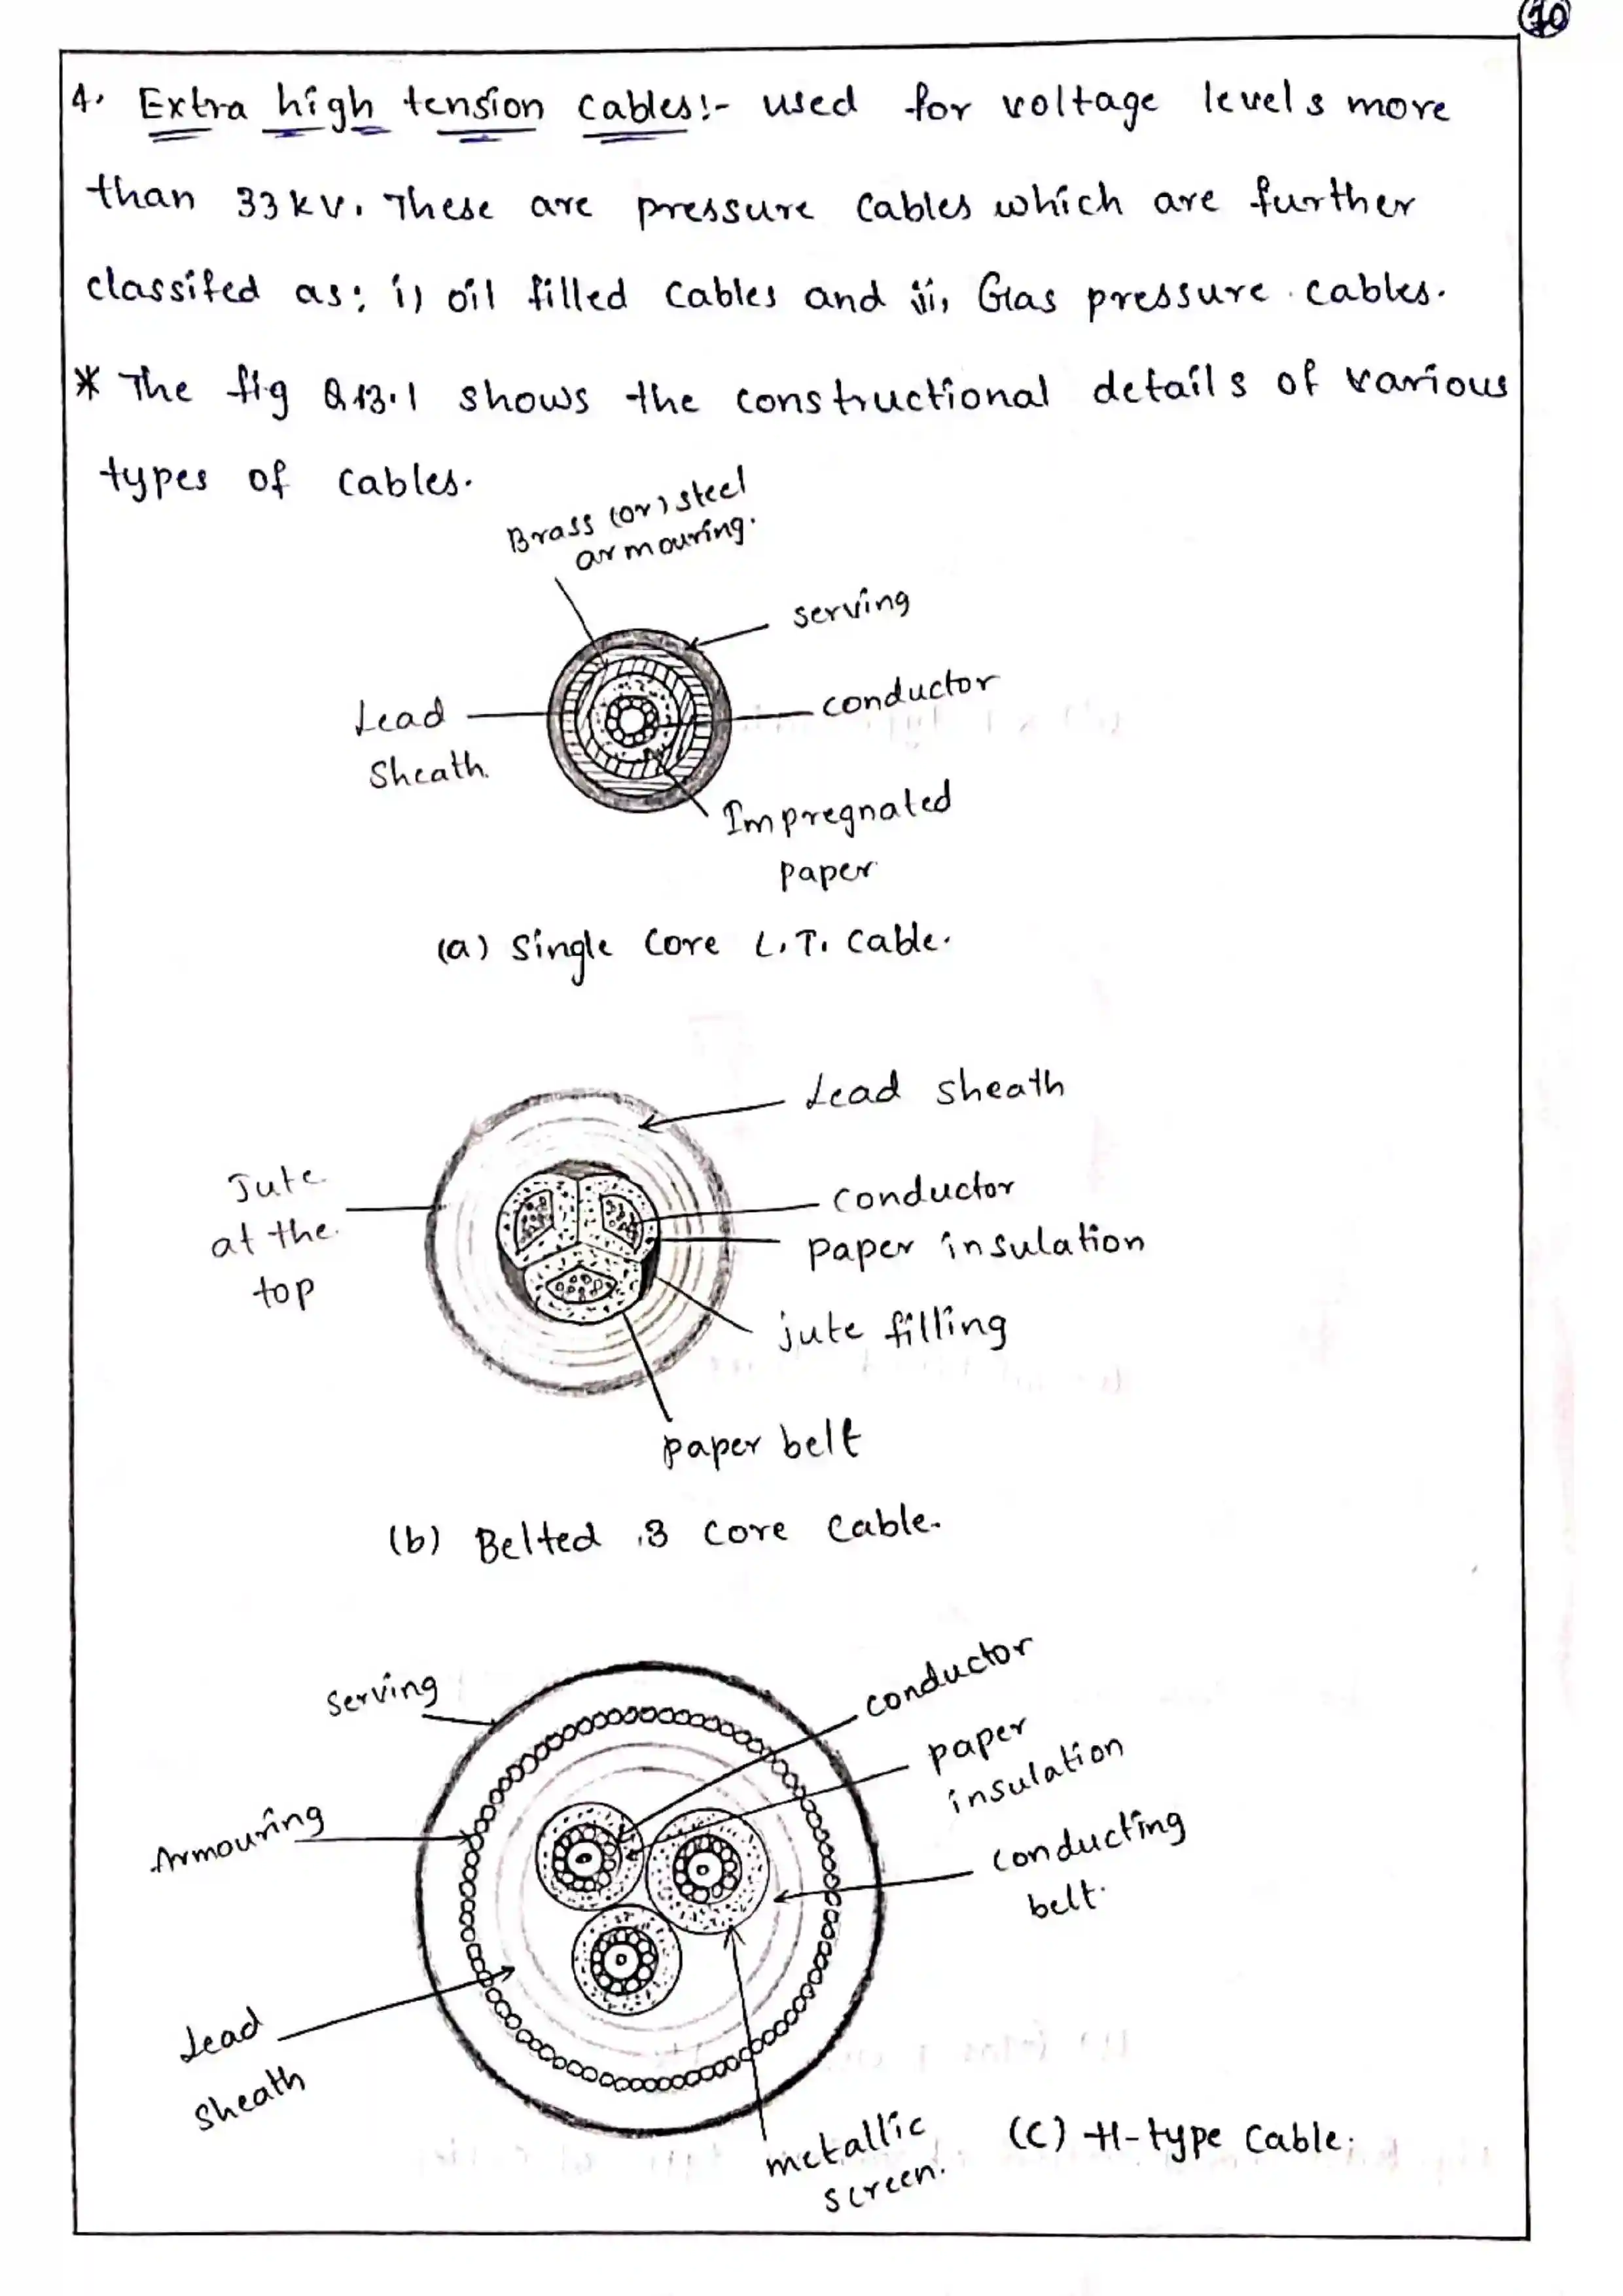 10
4. Extra high tension cables:- used for voltage levels more
than 33 kV. These are pressure cables which are further
classifed as: i) oil filled cables and ii) Gas pressure cables.
* The fig Q.13.1 shows the constructional details of various
types of cables.
Brass (or) steel
armouring.
serving
conductor
Lead
sheath.
Impregnated
paper
(a) Single core L.T. cable.
Lead sheath
Jute
at the
top
conductor
paper insulation
jute filling
paper belt
(b) Belted 3 core cable.
serving
conductor
paper
insulation
Armouring
conducting
belt.
Lead
sheath
metallic
screen.
(c) H-type cable.